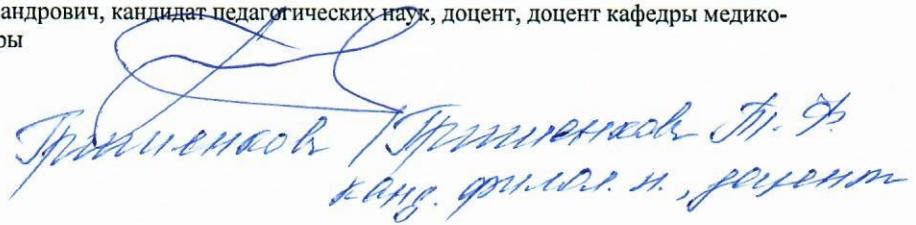 андрович, кандидат педагогических наук, доцент, доцент кафедры медико-
ры
Гришенкова / Гришенкова Т. Ф.
канд. филол. н., доцент